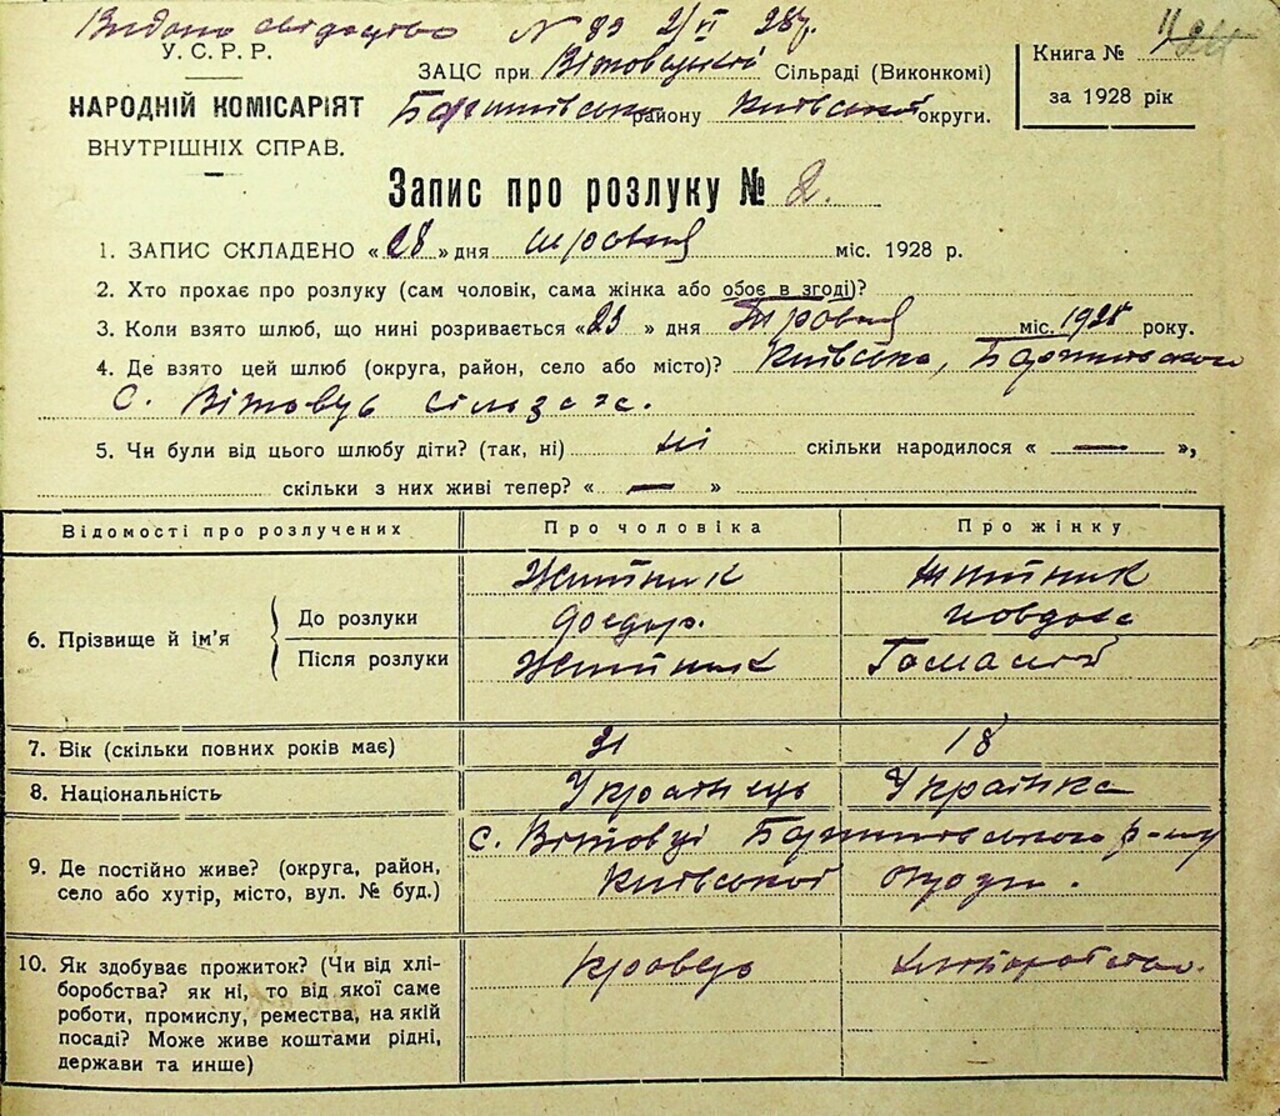 Видано свідоцтво N 83 2/VI 28 р.
У.С.Р.Р.
НАРОДНІЙ КОМІСАРІЯТ
ВНУТРІШНІХ СПРАВ.
ЗАЦС при Вітовецькій Сільраді (Виконкомі)
району Київської округи.
Книга №
за 1928 рік
Запис про розлуку № 2.
1. ЗАПИС СКЛАДЕНО «28» дня травня міс. 1928 р.
2. Хто прохає про розлуку (сам чоловік, сама жінка або обоє в згоді)?
3. Коли взято шлюб, що нині розривається «23» дня травня міс. 1928 року.
4. Де взято цей шлюб (округа, район, село або місто)? Київська,
с.
5. Чи були від цього шлюбу діти? (так, ні) ні скільки народилося « — »,
скільки з них живі тепер? « — »
Відомості про розлучених Про чоловіка Про жінку
6. Прізвище й ім'я
До розлуки Житник Житник
Федор. Човдоха
Після розлуки Житник
7. Вік (скільки повних років має) 21 18
8. Національність Українець Українка
9. Де постійно живе? (округа, район,
село або хутір, місто, вул. № буд.)
с. Вітовці р-ну
Київської округи.
10. Як здобуває прожиток? (Чи від хлі-
боробства? як ні, то від якої саме
роботи, промислу, ремества, на якій
посаді? Може живе коштами рідні,
держави та инше)
кравець хліборобство.